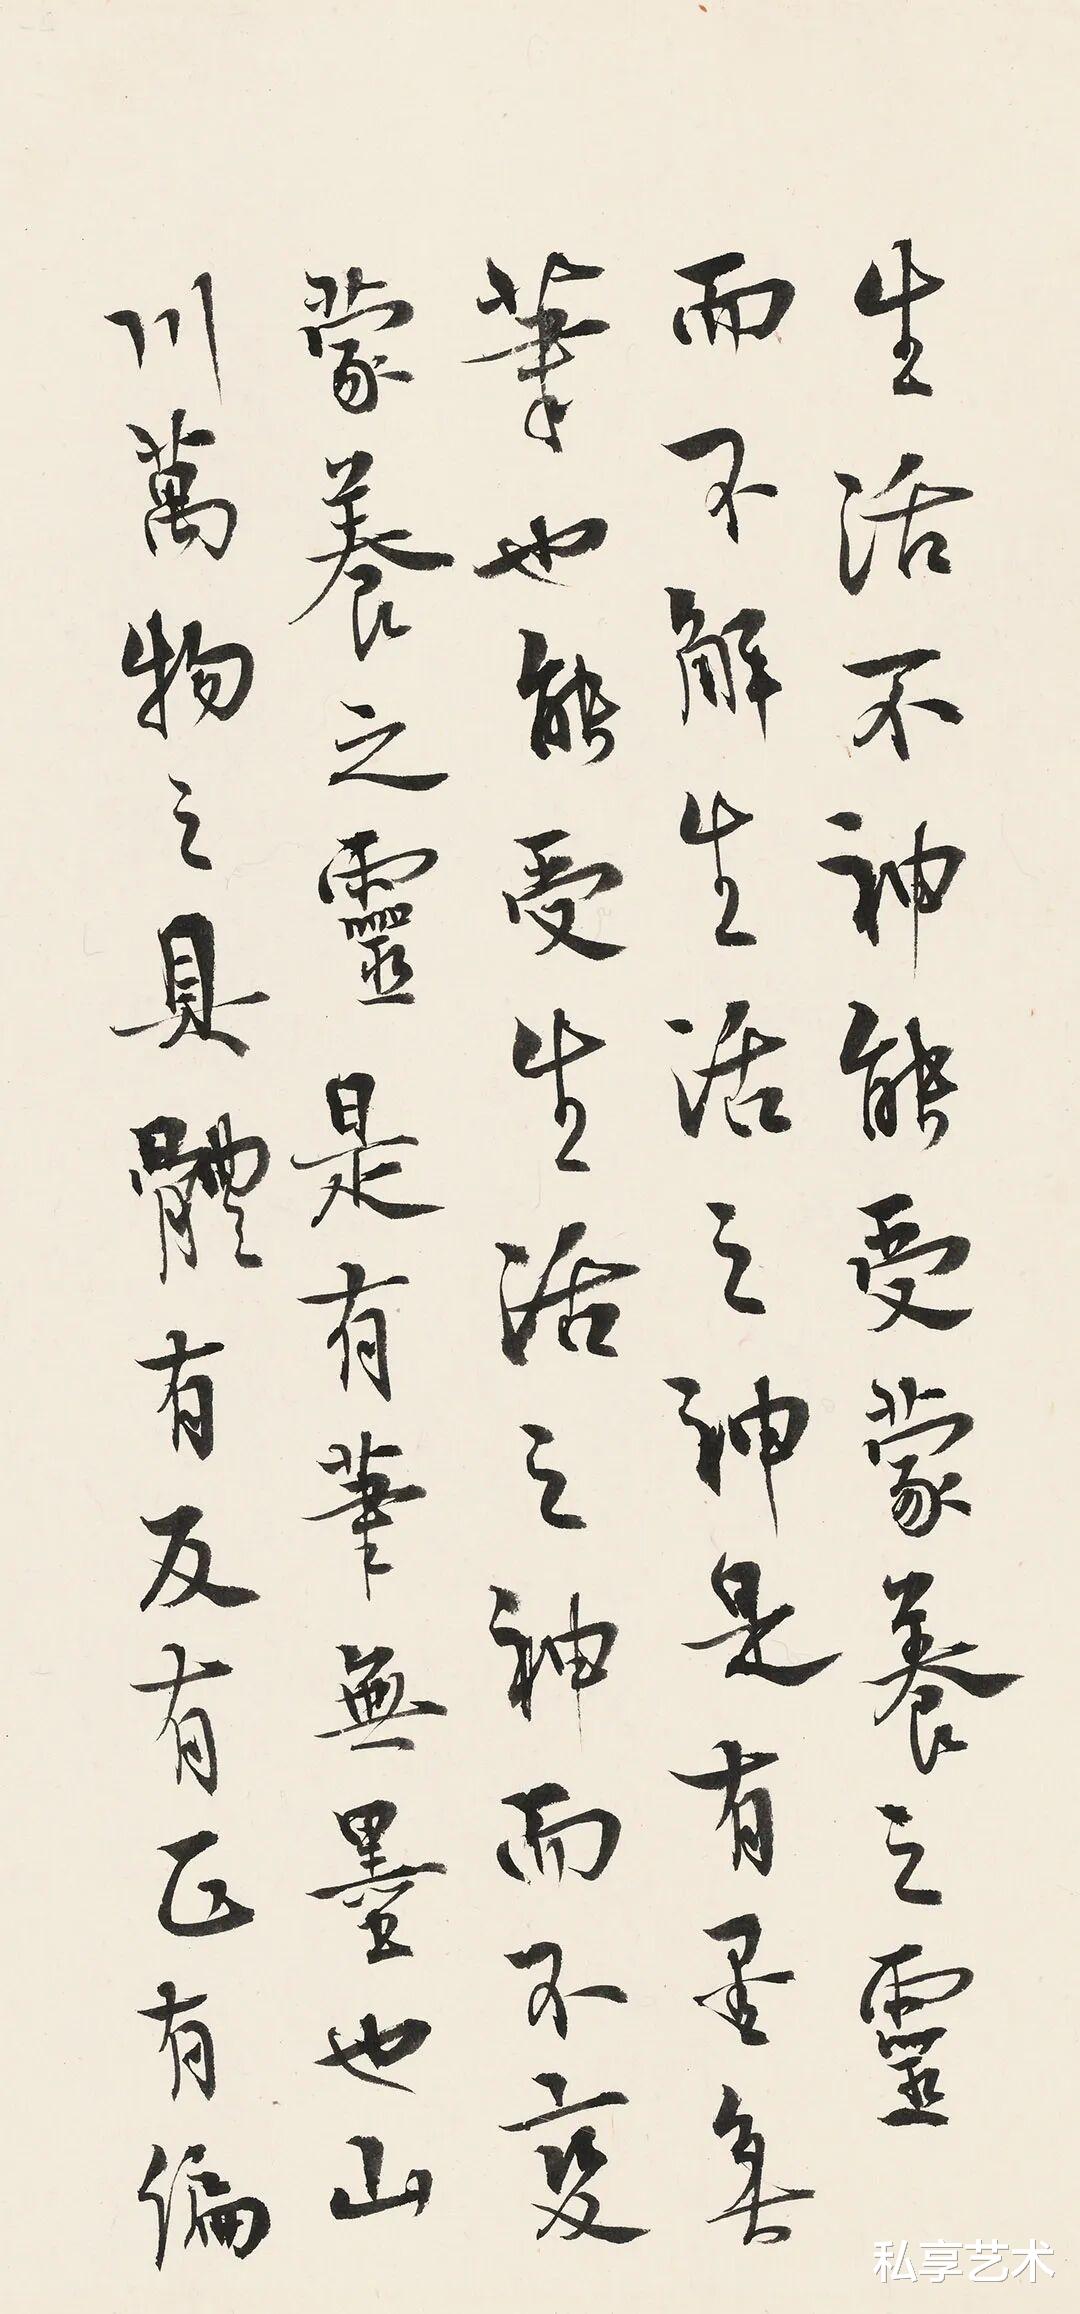 生活不神能受蒙養之靈
而不解生活之神是有墨無
筆也能受生活之神而不變
蒙養之靈是有筆無墨也山
川萬物之具體有反有正有偏
私享艺术